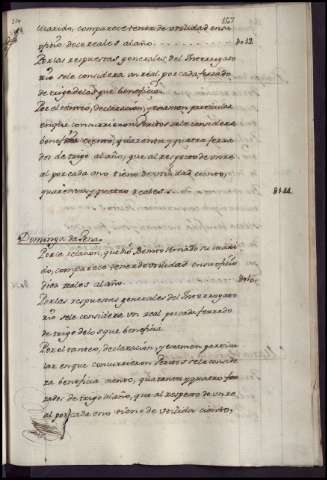 167
marido, comparece tener de utilidad en su
oficio doce reales al año.
Do12.
Por las respuestas generales del Interrogato
rio se le considera un real por cada ferrado
de trigo de los que beneficia.
Por el tanteo, declaracion, y examen particular
en que concurrieron Peritos se le considera
beneficia ciento, quarenta, y quatro ferra
dos de trigo al año, que al respecto de un re
al por cada uno tiene de utilidad ciento,
quarenta, y quatro reales.
D144.
Dominga da Pena
Por la relacion, que dio, Benito Hernado su mari
do, comparece tener de utilidad en su oficio
diez reales al año.
Do10.
Por las respuestas generales del Interrogato
rio se le considera un real por cada ferrado
de trigo de los que beneficia.
Por el tanteo, declaracion, y examen particu
lar en que concurrieron Peritos se le conside
ra beneficia ciento, quarenta, y quatro fe
rrados de trigo al año, que al respecto de un re
al por cada uno tiene de utilidad ciento,